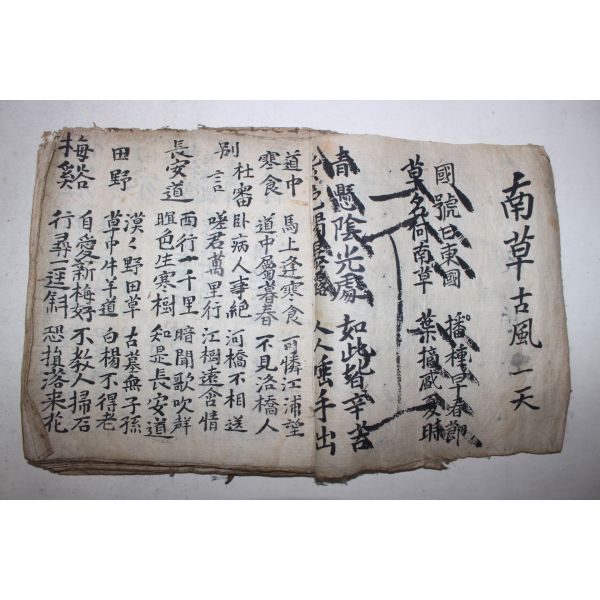 南草古風一天
國號曰東國 播種早春節
草名尚南草 葉摘盛夏時
青 陰光處 如此皆辛苦
人人垂手出
道中 馬上逢寒食 可憐江浦望
寒食 道中屬暮春 不見洛橋人
別杜審言 臥病人事絕 河橋不相送
嗟君萬里行 江樹遠含情
長安道 西行一千里 暗聞歌吹聲
暝色生寒樹 知是長安道
田野 漠々野田草 古墓無子孫
草中牛羊道 白楊不得老
梅谿 自愛新梅好 不教人掃石
行尋一逕斜 恐損落來花